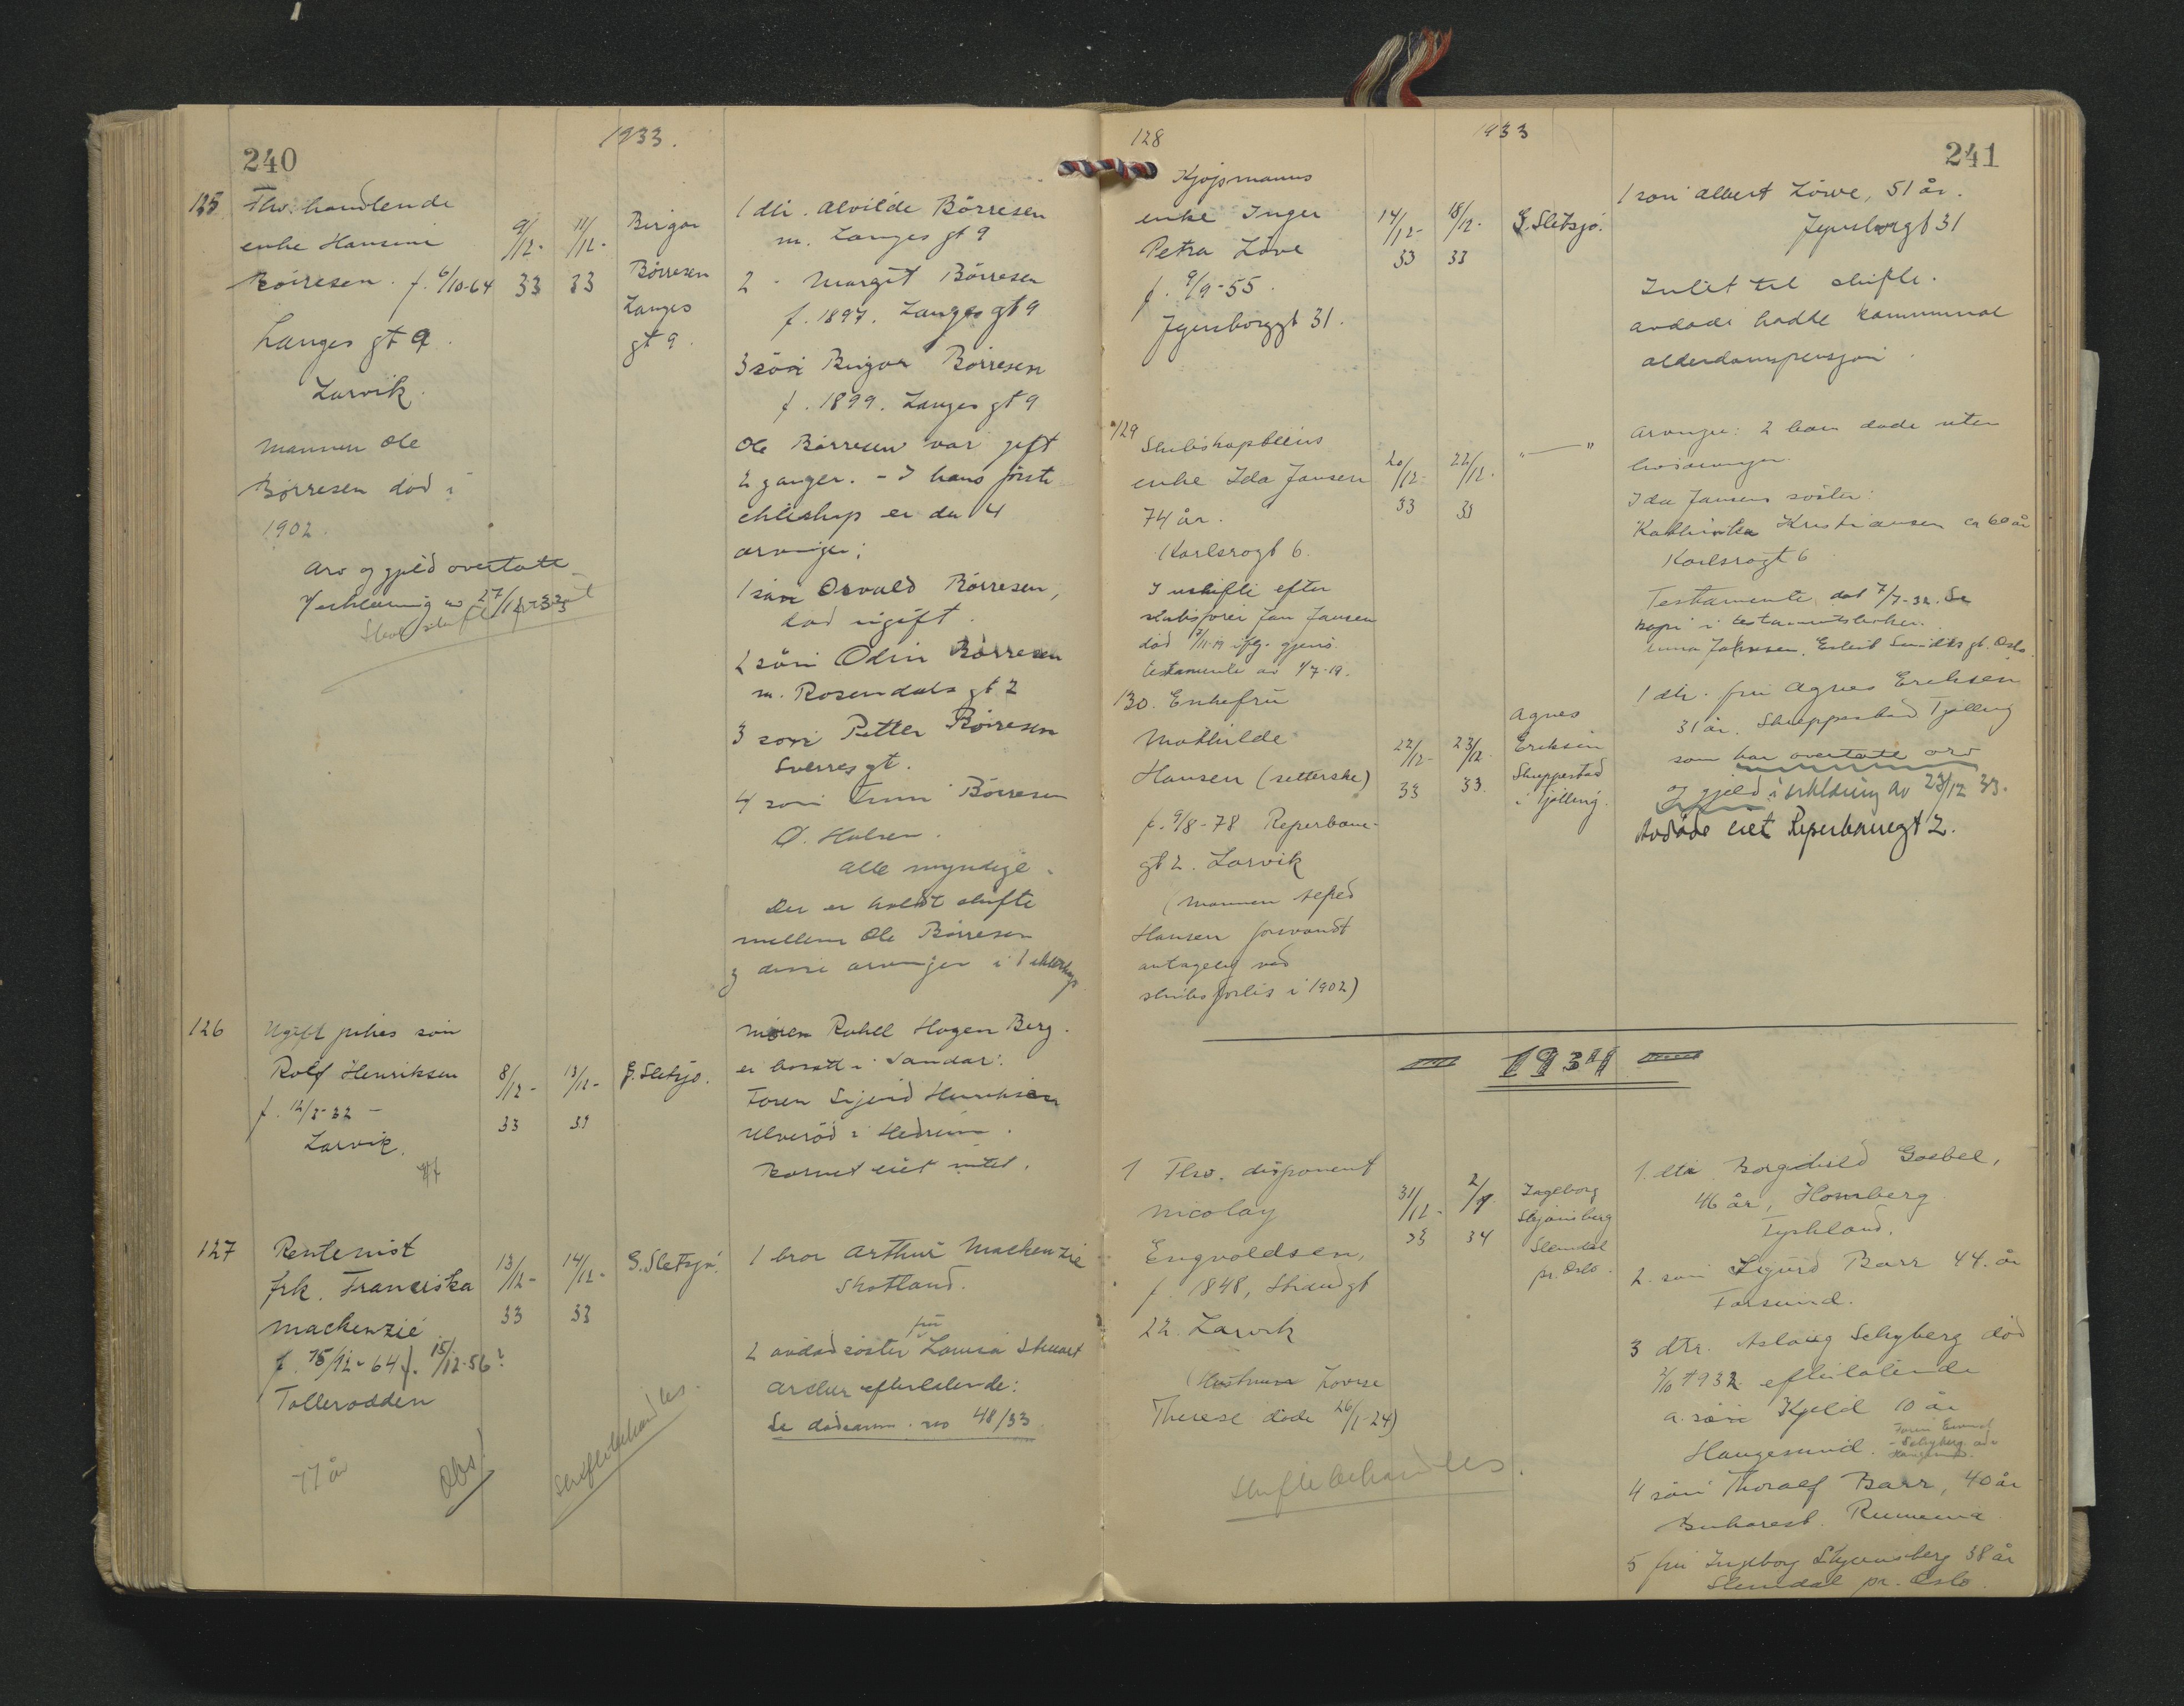 240
1933.
125 Fhv. handlende
enke Hansine
Børresen. f. 6/10-64
Langes gt 9.
Larvik.
Mannen Ole
Børresen död i
1902.
Arv og gjeld overtatt
erklæring av 27/12-33
9/12- 33
11/12- 33
Birger
Börresen
Langes
gt 9.
1 dtr. Alvilde Börresen
m. Langes gt 9
2 - Margit Börresen
f. 1897. Langes gt 9
3 sön Birger Börresen
f. 1899. Langes gt 9
Ole Börresen var gift
2 ganger. - I hans förste
ekteskap er da 4
arvinger:
1 sön Osvald Börresen,
död ugift.
2 sön Odin Börresen
m. Rosendals gt 2
3 sön Petter Börresen
Sverres gt.
4 sön Börresen
Ö. Halsen.
Alle myndige.
Der er holdt skifte
mellem Ole Börresen
og disse arvinger i 1 ekteskap
126 Ugift pikes sön
Rolf Henriksen
f. 12/3-32 -
Larvik.
8/12- 33
13/12- 33
G. Sletsjö.
Moren Rakel Hagen Berg.
er bosatt i Sandar.
Faren Sigurd Henriksen
Ulveröd i Hedrum.
Barnet eiet intet.
127 Rentenist
frk. Franciska
Mackenzie
f. 15/12-64 f. 15/12-56?
Tollerodden
77 år
Obs!
skiftebehandles.
13/12- 33
14/12- 33
G. Sletsjö.
1 bror Arthur Mackenzie
Skotland.
fru
2 avdöd söster Lovisa Stuart
Archer efterlatende:
Se dödsanm. no 48/33
128
1933
241
Kjøpmanns
enke Inger
Petra Löve
f. 9/9-55.
Jegersborggt 31.
14/12- 33
18/12- 33
G. Sletsjö.
1 sön Albert Löwe, 51 år.
Jegersborgt 31
Intet til skifte.
Avdöde hadde kommunal
alderdomspensjon.
129 Skibskapteins
enke Ida Jansen
74 år.
Karlsrogt 6.
I uskifte efter
skibsförer Jan Jansen
död 7/11-19 iflg. gjens.
testamente av 1/7-19.
20/12- 33
22/12- 33
" — "
Arvinger: 2 barn döde uten
livsarvinger.
Ida Jansens söster:
Kathinka Kristiansen ca 60 år
Karlsrogt 6
Testamente dat 7/7-32. Se
kopi i testamentsboken.
130. Enkefru
Mathilde
Hansen (setterske)
f. 9/8-78 Reperbane-
gt 2. Larvik
(Mannen Alfred
Hansen forsvandt
antagelig ved
skibsforlis i 1902)
22/12- 33
23/12. 33.
Agnes
Eriksen
Skreppestad
i Tjölling.
1 dtr. fru Agnes Eriksen
31 år. Skreppestad Tjölling
som har overtatt arv
og gjeld i erklæring av 23/12 33.
Avdøde eiet Reperbanegt 2.
1934
1 Fhv. disponent
Nicolay
Engvoldsen,
f. 1848, Strandgt
22. Larvik
(Hustruen Lovise
Therese döde 26/1-24)
Skiftebehandles.
31/12- 33
2/1. 34
Ingeborg
Skjönsberg
Slemdal
pr. Oslo.
1. dtr Borghild Goebel,
46 år, Homberg
Tyskland.
2. sön Sigurd Barr 44. år
Farsund.
3 dtr. Aslaug Schyberg död
2/10 1932 efterlatende
a. sön Kjeld 10 år
Haugesund.
4 sön Thoralf Barr, 40 år
Bukarest. Rumenia
5 fru Ingeborg Skjönsberg 38 år
Slemdal pr. Oslo.